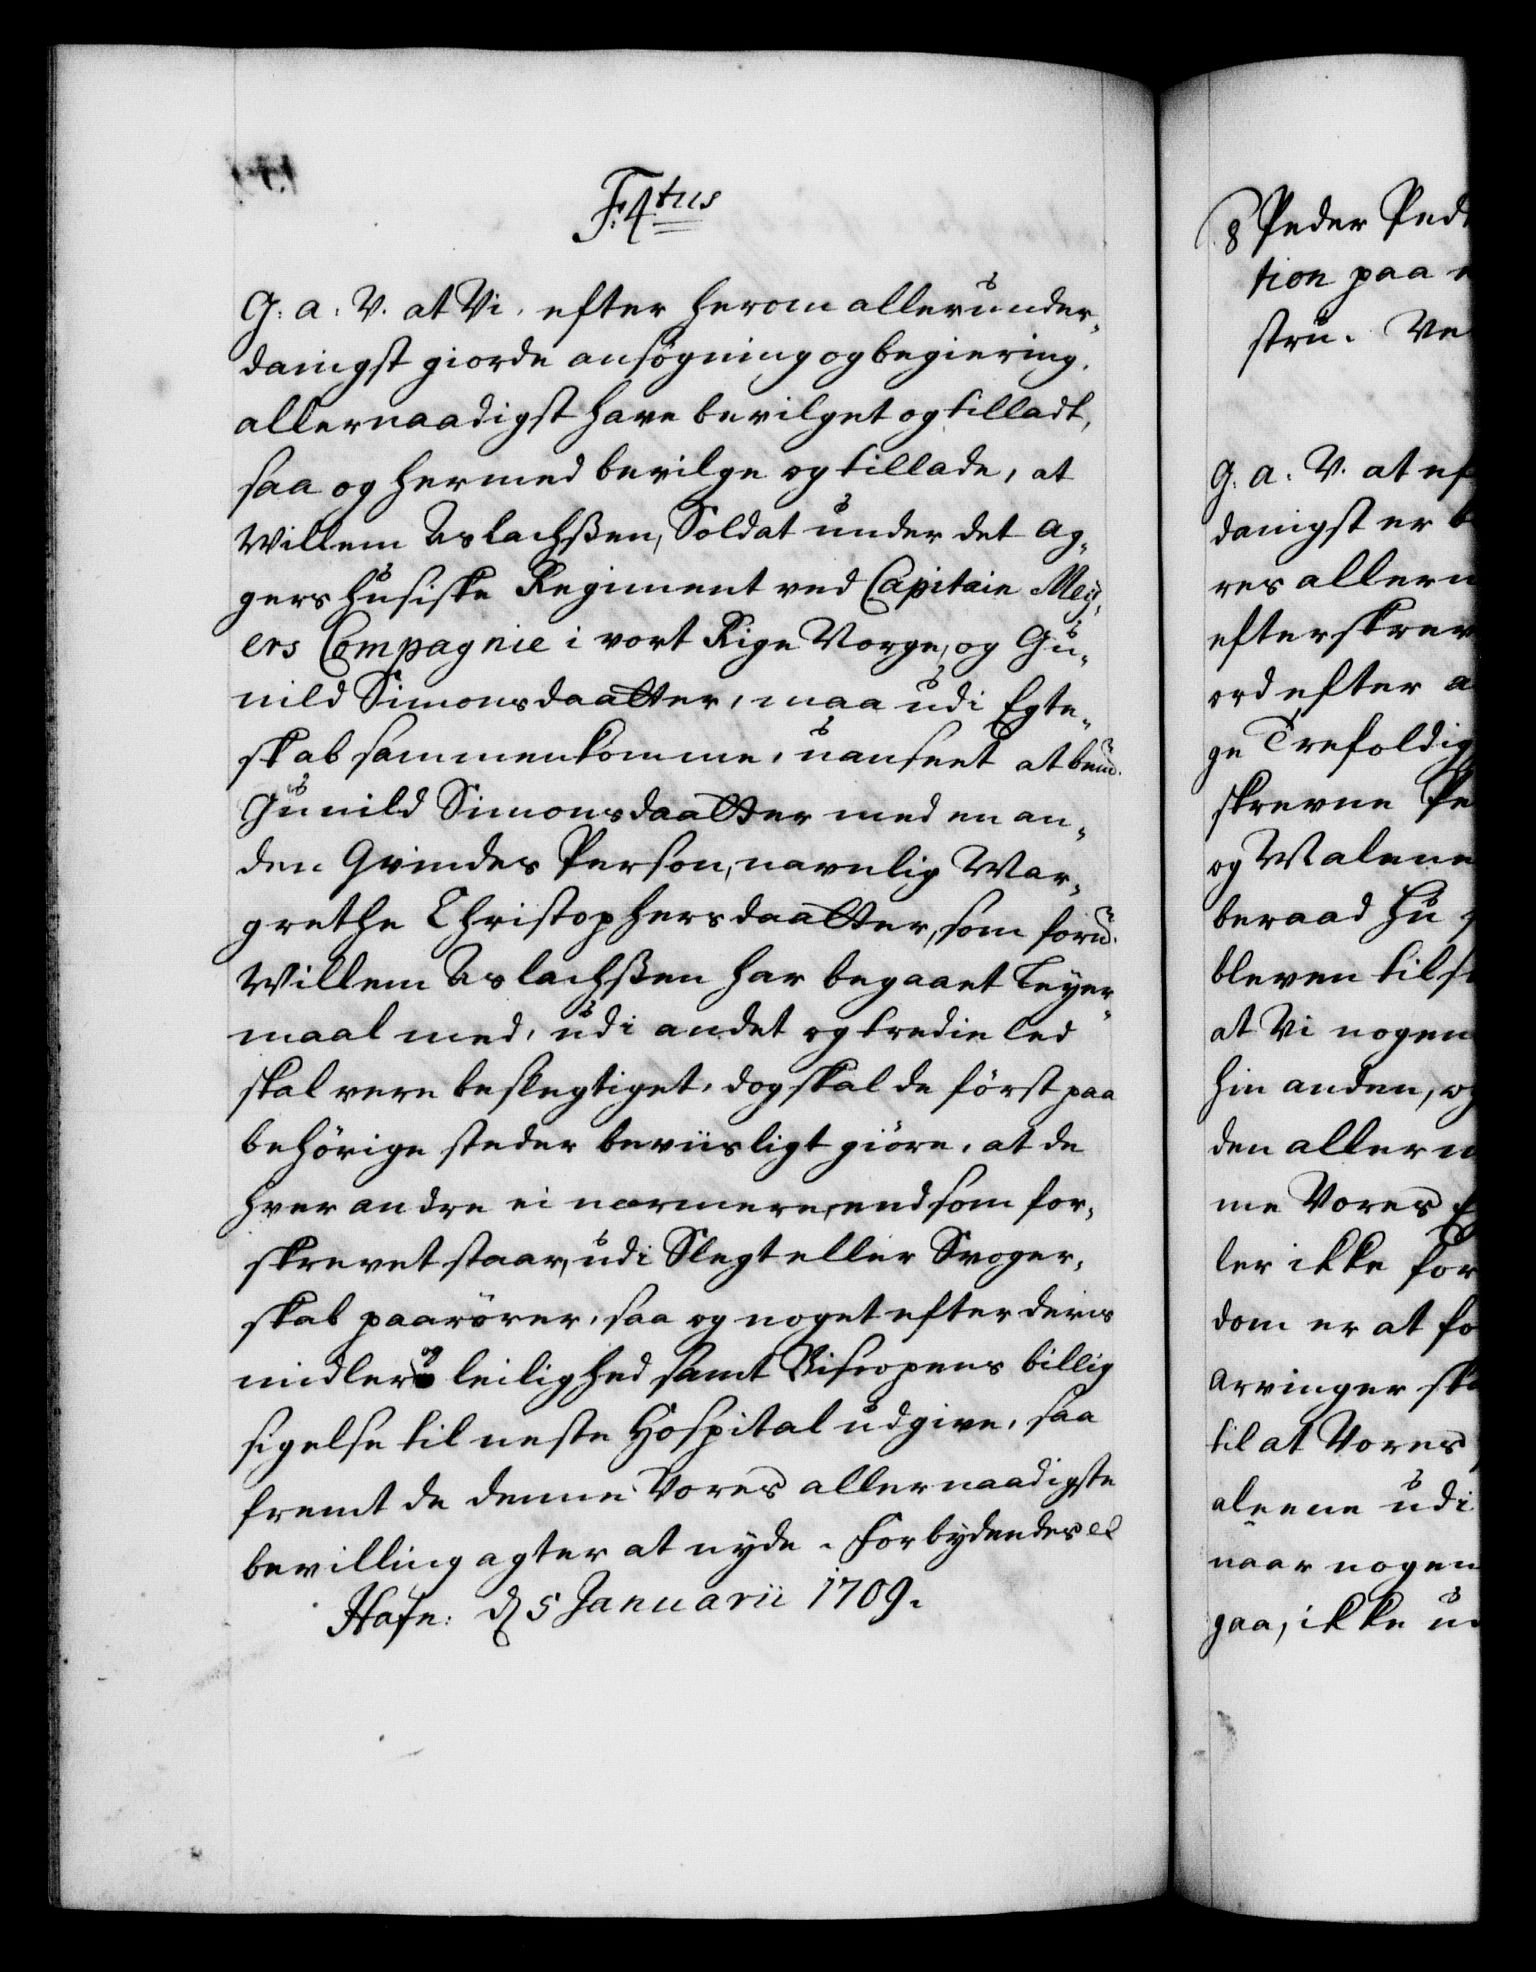 F: 4tus
G: a: V. at Vi, efter herom allerunder-
danigst giorde ansögning og begiering,
allernaadigst have bevilget og tilladt,
saa og hermed bevilge og tillade, at
Willem Aslachßen, Soldat under det Ag-
gershusiske Regiment ved Capitain Meÿ-
ers Compagnie i vort Rige Norge, og Gu-
nild Simonsdaatter, maa udi Egte-
skab sammenkomme, uanseet at bem.
Gunild Simonsdaatter med en an-
den Qvindes Person, navnlig Mar-
grethe Christophersdaatter, som forn.
Willem Aslachßen har begaaet Leyer-
maal med, udi andet og tredie led
skal være beslegtiget, dog skal de först paa
behörige steder beviisligt giöre, at de
hver andre ei nærmere, end som for-
skrevet staar, udi Slegt eller Svoger-
skab paarörer, saa og noget efter deris
midler og leilighed samt Biscopens billig
sigelse til neste Hospital udgive, saa
fremt de denne Vores allernaadigste
bevilling agter at nyde. Forbydendes etc
Hafn: d 5 Januarii 1709.
8 Peder Ped
tion paa
stru. Ve
G. a. V. at ef
danigst er b
res allern
efterskrev
ord efter a
ge Trefoldig
skrevne Pe
og Malene
beraad Hu
bleven tils
at Vi nogen
hin anden, og
den allern
me Vores E
ler ikke for
dom er at fo
arvinger sk
til at Vores
aleene udi
naar nogen
gaa, ikke u